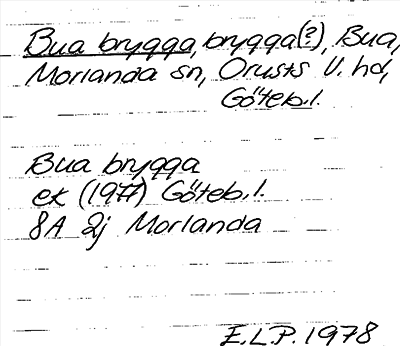 Bua brygga, brygga(?), Bua,
Morlanda sn, Orusts V. hd,
Göteb. l.
Bua brygga
ek (1977) Göteb. l.
8A 2j Morlanda
E.L.P. 1978